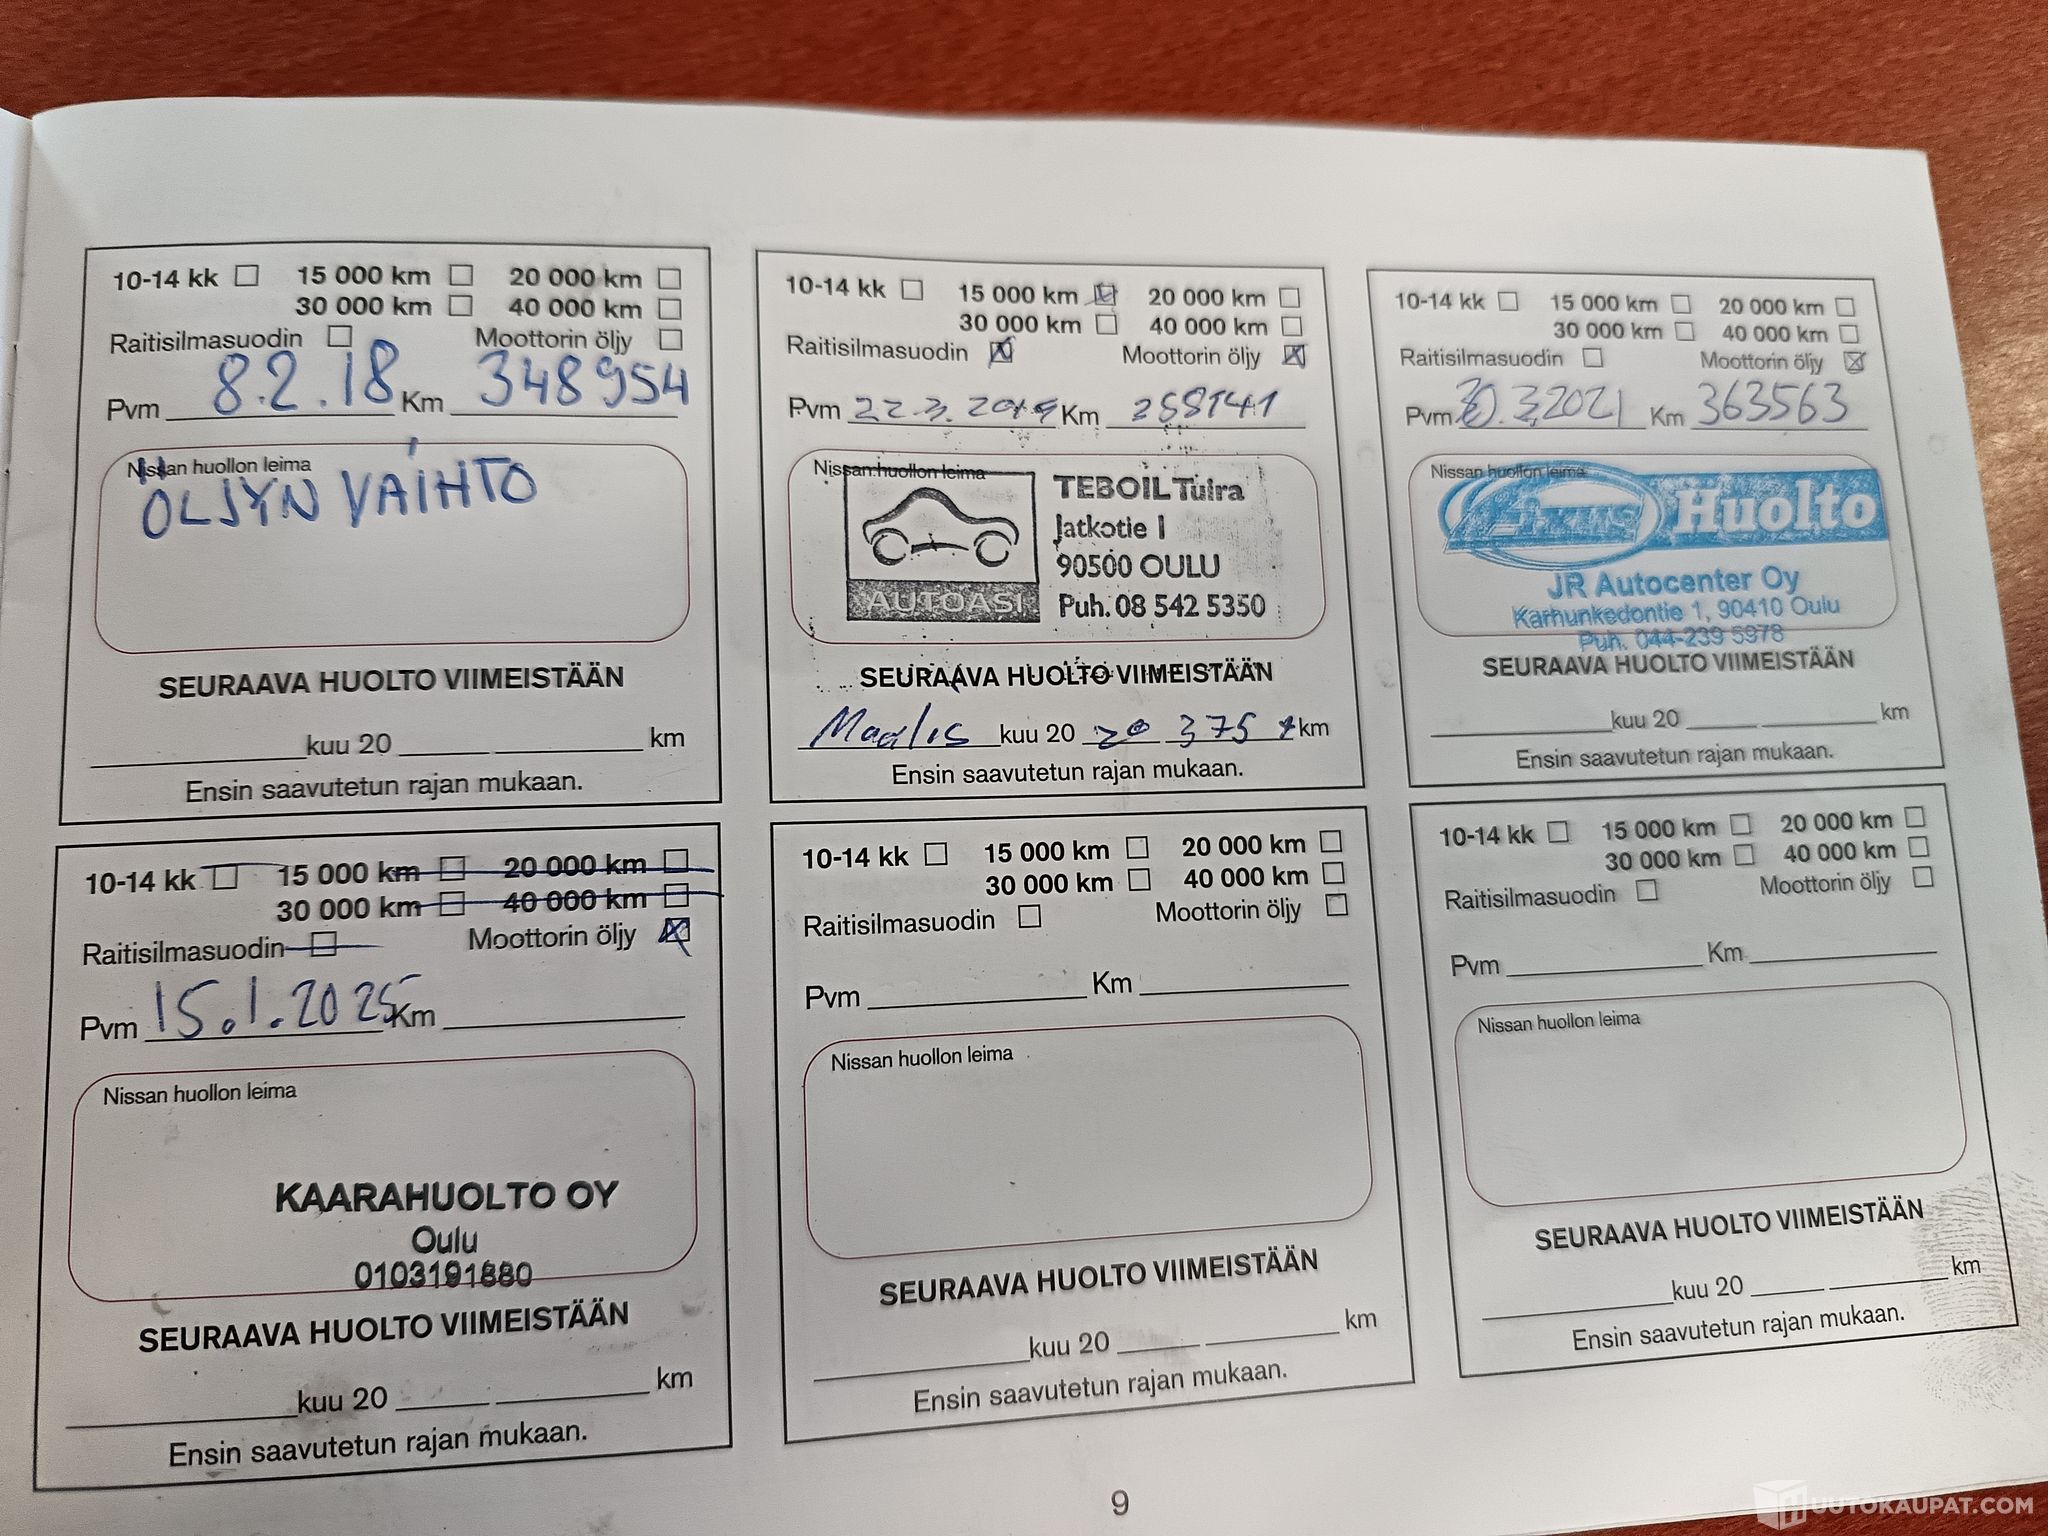 10-14 kk 15 000 km 20 000 km
30 000 km 40 000 km
Raitisilmasuodin Moottorin öljy
Pvm 8.2.18 Km 348954
Nissan huollon leima
ÖLJYN VAIHTO
SEURAAVA HUOLTO VIIMEISTÄÄN
kuu 20 km
Ensin saavutetun rajan mukaan.
10-14 kk 15 000 km 20 000 km
30 000 km 40 000 km
Raitisilmasuodin Moottorin öljy
Pvm 22.3.2019 Km
Nissan huollon leima
AUTOASI
TEBOIL Tuira
Jatkotie 1
90500 OULU
Puh. 08 542 5350
SEURAAVA HUOLTO VIIMEISTÄÄN
Maalis kuu 20 20 375 km
Ensin saavutetun rajan mukaan.
10-14 kk 15 000 km 20 000 km
30 000 km 40 000 km
Raitisilmasuodin Moottorin öljy
Pvm 30.3.2021 Km 363563
Nissan huollon leima
Huolto
JR Autocenter Oy
Karhunkedontie 1, 90410 Oulu
Puh. 044-239 5978
SEURAAVA HUOLTO VIIMEISTÄÄN
kuu 20 km
Ensin saavutetun rajan mukaan.
10-14 kk 15 000 km 20 000 km
30 000 km 40 000 km
Raitisilmasuodin Moottorin öljy
Pvm 15.1.2025 Km
Nissan huollon leima
KAARAHUOLTO OY
Oulu
0103191880
SEURAAVA HUOLTO VIIMEISTÄÄN
kuu 20 km
Ensin saavutetun rajan mukaan.
10-14 kk 15 000 km 20 000 km
30 000 km 40 000 km
Raitisilmasuodin Moottorin öljy
Pvm Km
Nissan huollon leima
SEURAAVA HUOLTO VIIMEISTÄÄN
kuu 20 km
Ensin saavutetun rajan mukaan.
10-14 kk 15 000 km 20 000 km
30 000 km 40 000 km
Raitisilmasuodin Moottorin öljy
Pvm Km
Nissan huollon leima
SEURAAVA HUOLTO VIIMEISTÄÄN
kuu 20 km
Ensin saavutetun rajan mukaan.
9
HUUTOKAUPAT.COM